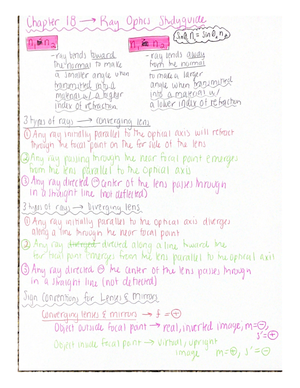 Chapter 18 → Ray Optics Studyguide
n₁ < n₂
n₁ > n₂
-ray bends toward
the normal to make
a smaller angle when
transmitted into a
material w/ a bigger
index of refraction
-ray bends away
from the normal
to make a larger
angle when transmitted
into a material w/
a lower index of refraction
3 types of rays → converging lens
① Any ray initially parallel to the optical axis will refract
through the focal point on the far side of the lens
② Any ray passing through the near focal point emerges
from the lens parallel to the optical axis
③ Any ray directed @ center of the lens passes through
in a straight line (not deflected)
3 types of rays → Diverging lens
① Any ray initially parallel to the optical axis diverges
along a line through the near focal point
② Any ray directed along a line toward the
far focal point emerges from the lens parallel to the optical axis
③ Any ray directed @ the center of the lens passes through
in a straight line (not deflected)
Sign Conventions for Lenses & Mirrors
Converging lenses & mirrors → f = +
Object outside focal point → real, inverted image, m=⊖,
s'=⊕
Object inside focal point → virtual, upright
image m=⊕, s'=⊖